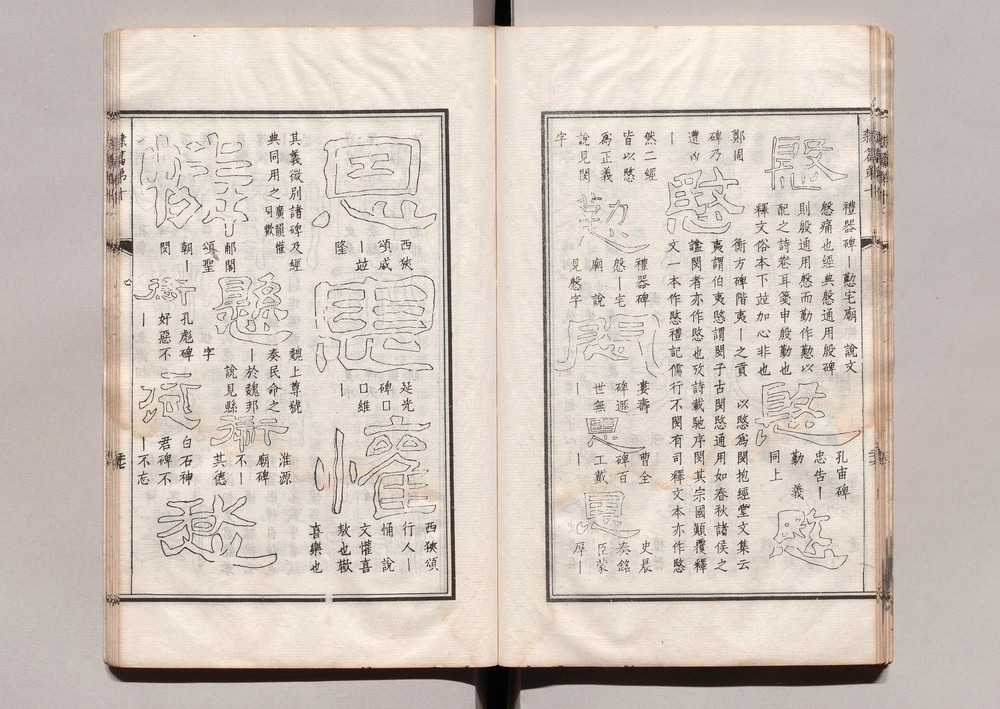 隸篇弟十
慇
禮器碑｜懃宅廟　說文
慇痛也經典慇通用殷碑
則殷通用慇而勤作懃以
配之詩卷耳箋申殷勤也
釋文俗本下竝加心非也
慇
孔宙碑
忠告｜
勤　義
同上
愍
鄭固
碑乃
遭凶
｜
愍
衡方碑階夷｜之貢　以愍爲閔抱經堂文集云
夷謂伯夷愍謂閔子古閔愍通用如春秋諸侯之
謚閔者亦作愍也攷詩載馳序閔其宗國顛覆釋
文一本作愍禮記儒行不閔有司釋文本亦作愍
然二經
皆以愍
爲正義
說見閔
字
懃
禮器碑
慇｜宅
廟　說
見慇字
悶
婁壽
碑遯
世無
｜
恩
曹全
碑百
工戴
｜
恩
史晨
奏銘
臣蒙
厚｜
恩
西狹
頌威
｜竝
隆
恩
延光
碑口
口維
｜
懽
西狹頌
行人｜
悀　說
文懽喜
㰻也歡
喜樂也
其義微別諸碑及經
典同用之廣韻懽同歡
憐
郙閣
頌聖
朝｜
閔
懸
魏上尊號
奏民命之
｜於魏邦
說見縣
字
愆
淮源
廟碑
不｜
其德
愆
孔彪碑
好惡不
｜
愆
白石神
君碑不
｜不忘
愁
隸篇弟十